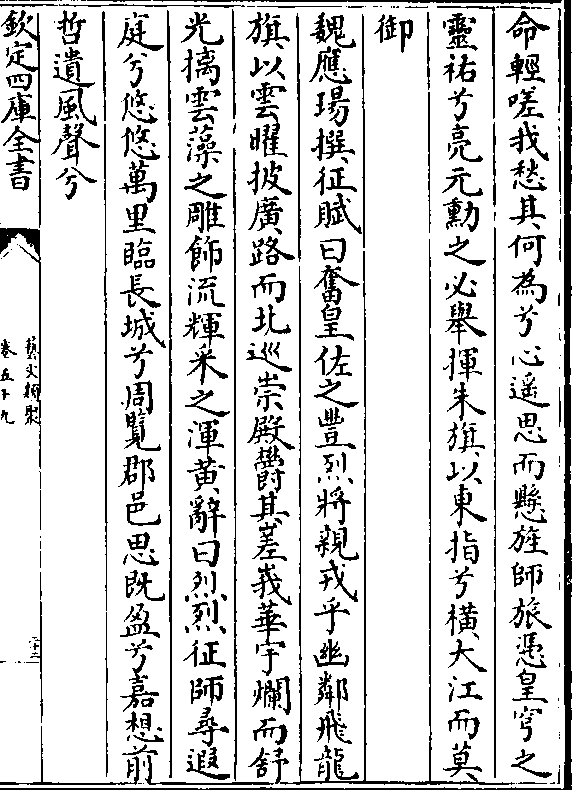 命輕嗟我愁其何為兮心遥思而懸旌師旅憑皇穹之
靈祐兮亮元勳之必舉揮朱旗以東指兮橫大江而莫
御
魏應瑒撰征賦曰奮皇佐之豐烈將親戎乎幽鄰飛龍
旗以雲曜披廣路而北巡崇殿欝其嵳峩華宇爛而舒
光摛雲藻之雕飾流輝采之渾黄辭曰烈烈征師尋遐
庭兮悠悠萬里臨長城兮周覽郡邑思既盈兮嘉想前
哲遺風聲兮
欽定四庫全書
藝文類聚
卷五十九
二十二